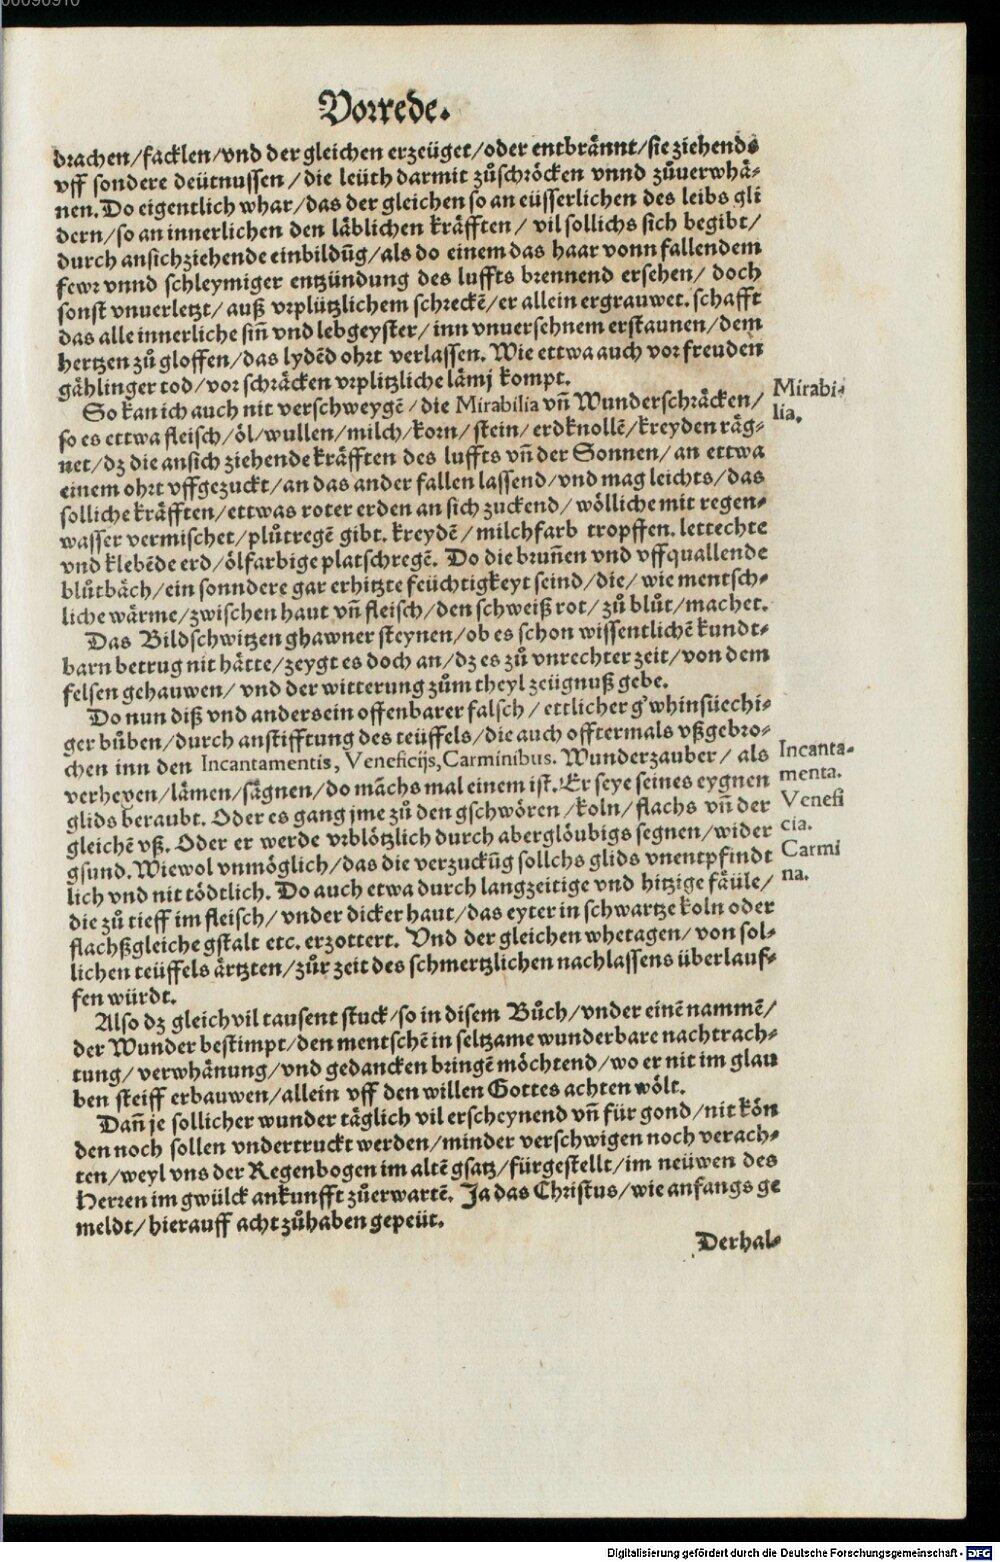 Vorrede.
drachen/facklen/vnd der gleichen erzeüget/oder entbrännt/sie ziehends
vff sondere deütnussen/die leüth darmit zůschröcken vnnd zůuerwhä-
nen. Do eigentlich whar/das der gleichen so an eüsserlichen des leibs gli
dern/so an innerlichen den läblichen kräfften/ vil sollichs sich begibt/
durch ansichziehende einbildūg/als do einem das haar vonn fallendem
fewr vnnd schleymiger entzündung des luffts brennend ersehen/ doch
sonst vnuerletzt/ auß vrplützlichem schreckē/er allein ergrauwet. schafft
das alle innerliche sinn̄ vnd lebgeyster/ inn vnuersehnem erstaunen/dem
hertzen zů gloffen/das lydēd ohrt verlassen. Wie ettwa auch vor freuden
gählinger tod/vor schräcken vrplitzliche lämj kompt.
So kan ich auch nit verschweygē/die Mirabilia vn̄ Wunderschräcken/
Mirabi-
lia.
so es ettwa fleisch/öl/wullen/milch/korn/stein/erdknollē/kreyden räg-
net/dz die ansich ziehende kräfften des luffts vn̄ der Sonnen/an ettwa
einem ohrt vffgezuckt/an das ander fallen lassend/vnd mag leichts/das
solliche kräfften/ettwas roter erden an sich zuckend/wölliche mit regen-
wasser vermischet/plůtregē gibt. kreydē/milchfarb tropffen. lettechte
vnd klebēde erd/ölfarbige platschregē. Do die brun̄en vnd vffquallende
blůtbäch/ein sonndere gar erhitzte feüchtigkeyt seind/die/wie mentsch-
liche wärme/zwischen haut vn̄ fleisch/den schweiß rot/zů blůt/machet.
Das Bildschwitzen ghawner steynen/ob es schon wissentlichē kundt-
barn betrug nit hätte/zeygt es doch an/dz es zů vnrechter zeit/von dem
felsen gehauwen/ vnd der witterung zům theyl zeügnuß gebe.
Do nun diß vnd anders ein offenbarer falsch/ ettlicher g'whinsüechi-
ger bůben/durch anstifftung des teüffels/die auch offtermals vßgebro-
chen inn den Incantamentis, Veneficijs, Carminibus. Wunderzauber/ als
Incanta-
menta.
Venefi
cia.
Carmi
na.
verhexen/lämen/sägnen/do māchs mal einem ist. Er seye seines eygnen
glids beraubt. Oder es gang jme zů den gschwören/koln/flachs vn̄ der
gleichē vß. Oder er werde vrblötzlich durch aberglöubigs segnen/wider
gsund. Wiewol vnmöglich/das die verzuckūg sollchs glids vnentpfindt
lich vnd nit tödtlich. Do auch etwa durch langzeitige vnd hitzige fäüle/
die zů tieff im fleisch/vnder dicker haut/das eyter in schwartze koln oder
flachßgleiche gstalt etc. erzottert. Vnd der gleichen whetagen/von sol-
lichen teüffels ärtzten/zůr zeit des schmertzlichen nachlassens überlauf-
fen würdt.
Also dz gleich vil tausent stuck/so in disem Bůch/vnder einē nammē/
der Wunder bestimpt/den mentschē in seltzame wunderbare nachtrach-
tung/verwhänung/vnd gedancken bringē möchtend/wo er nit im glau
ben steiff erbauwen/allein vff den willen Gottes achten wölt.
Dan̄ je sollicher wunder täglich vil erscheynend vn̄ für gond/nit kön
den noch sollen vndertruckt werden/minder verschwigen noch verach-
ten/weyl vns der Regenbogen im altē gsatz/fürgestellt/im neüwen des
Herren im gwülck ankunfft zůerwartē. Ja das Christus/wie anfangs ge
meldt/hierauff acht zůhaben gepeüt.
Derhal-
Digitalisierung gefördert durch die Deutsche Forschungsgemeinschaft - DFG